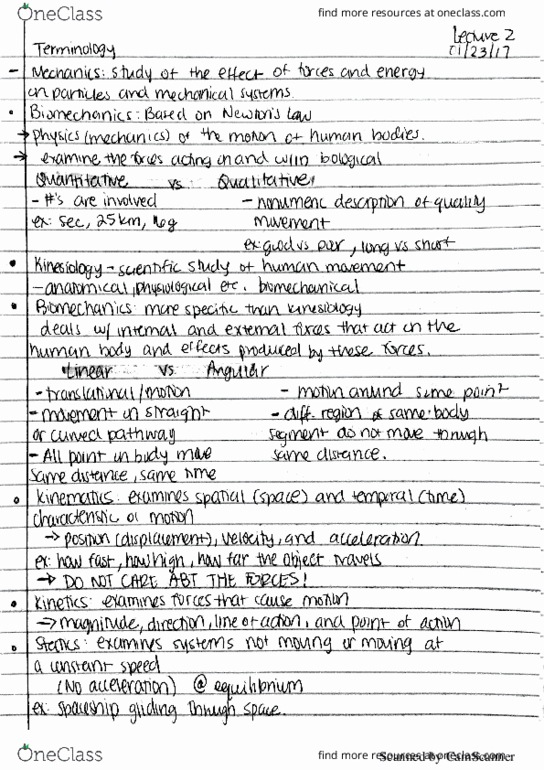 OneClass
find more resources at oneclass.com
Lecture 2
01/23/17
Terminology
- Mechanics: study of the effect of forces and energy
on particles and mechanical systems.
• Biomechanics: Based on Newton's Law
→ physics (mechanics) of the motion of human bodies.
→ examine the forces acting on and w/in biological
Quantitative vs Qualitative
- #'s are involved
ex: sec, 25km,
- nonumeric description of quality
movement
ex: good vs poor, long vs short
• Kinesiology - scientific study of human movement
- anatomical, physiological etc. biomechanical
• Biomechanics: more specific than kinesiology
deals w/ internal and external forces that act on the
human body and effects produced by these forces.
Linear vs Angular
- translational/motion
- movement in straight
or curved pathway
- All point in body move
same distance, same time
- motion around some point
- diff. region of same body
segment do not move through
same distance.
• Kinematics: examines spatial (space) and temporal (time)
characteristic of motion
→ position (displacement), velocity, and acceleration
ex: how fast, how high, how far the object travels
→ DO NOT CARE ABT THE FORCES!
• Kinetics: examines forces that cause motion
→ magnitude, direction, line of action, and point of action
• Statics: examines systems not moving or moving at
a constant speed
(No acceleration) @ equilibrium
ex: spaceship gliding through space.
OneClass
find more resources at oneclass.com
Scanned by CamScanner